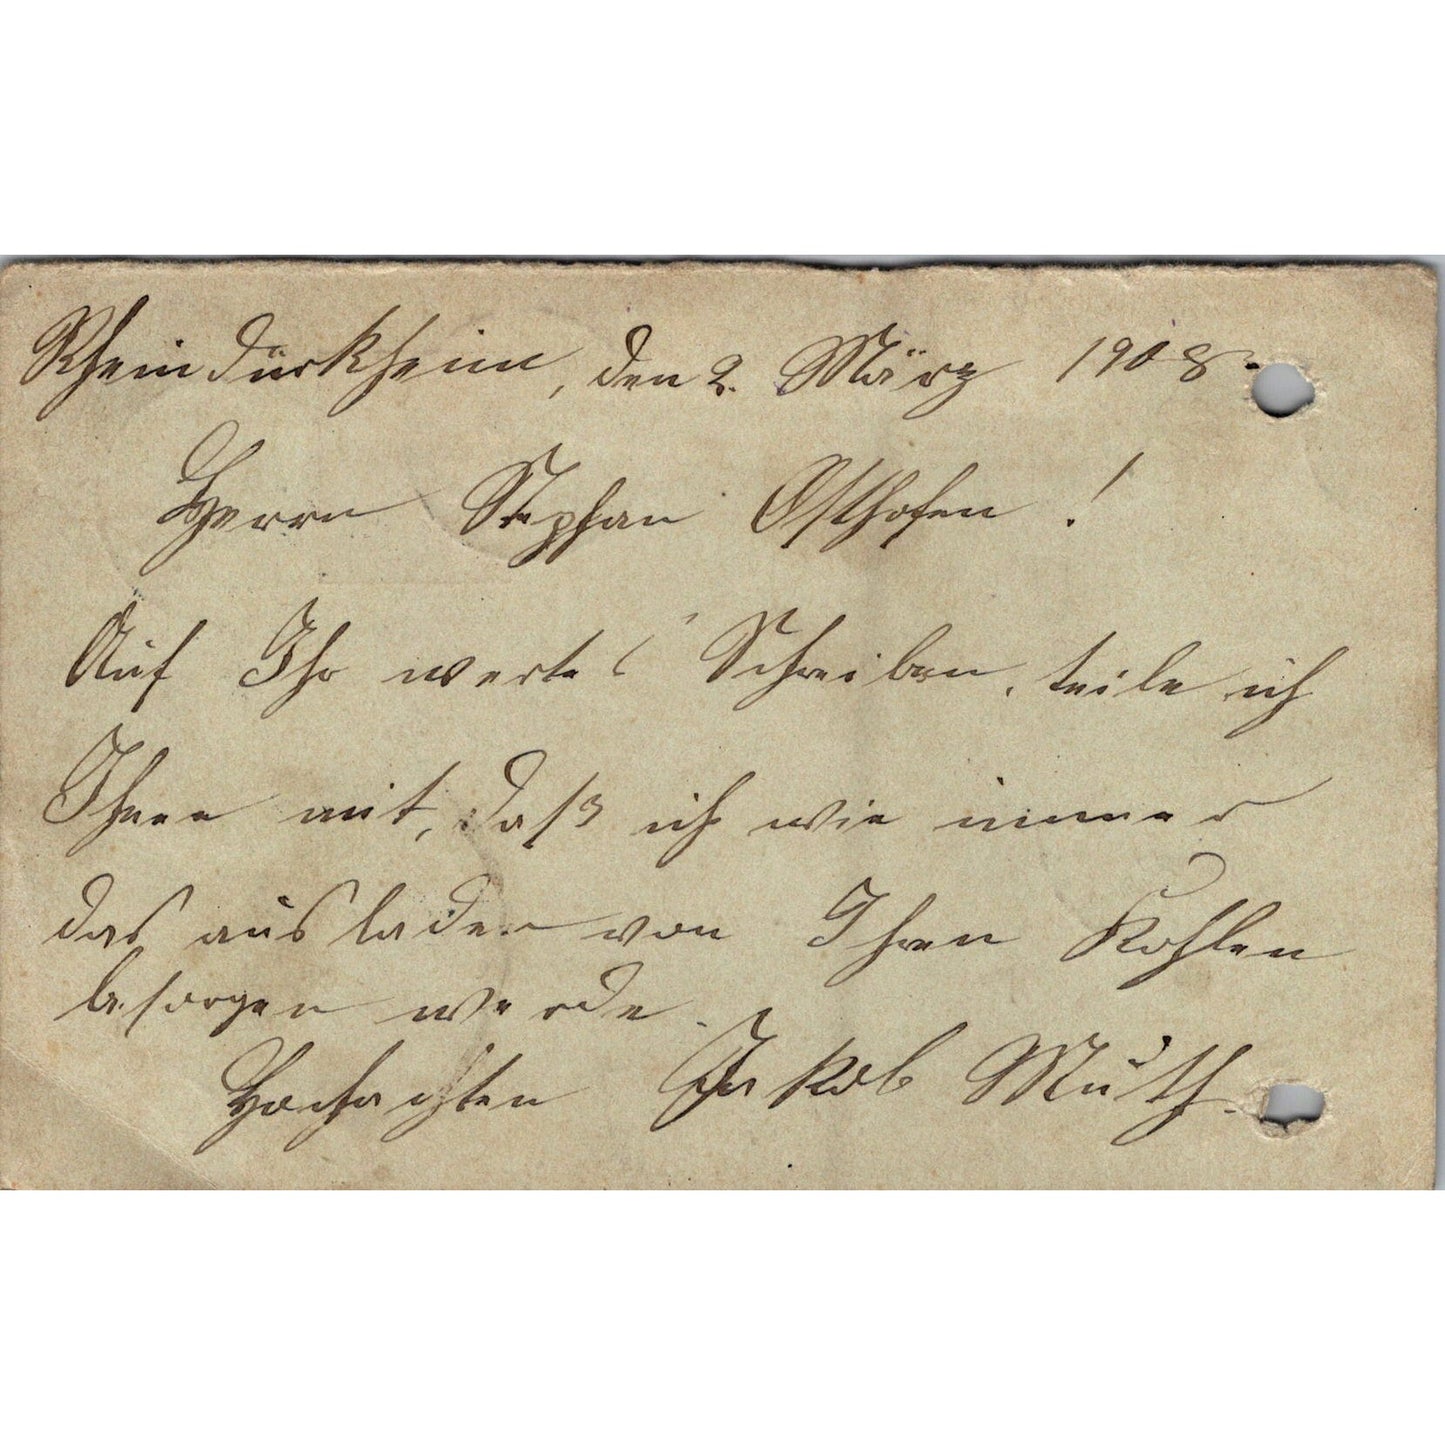 Rheindürkheim, den 2. März 1908.
Herrn Stephan Osthofen!
Auf Ihr wertes Schreiben, teile ich
Ihnen mit, daß ich wie immer
das ausladen von Ihren Kohlen
besorgen werde.
Hochachten Jakob Muth.